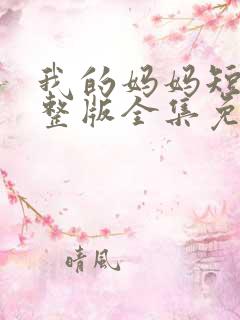 我的妈妈短
整版全集免
晴风